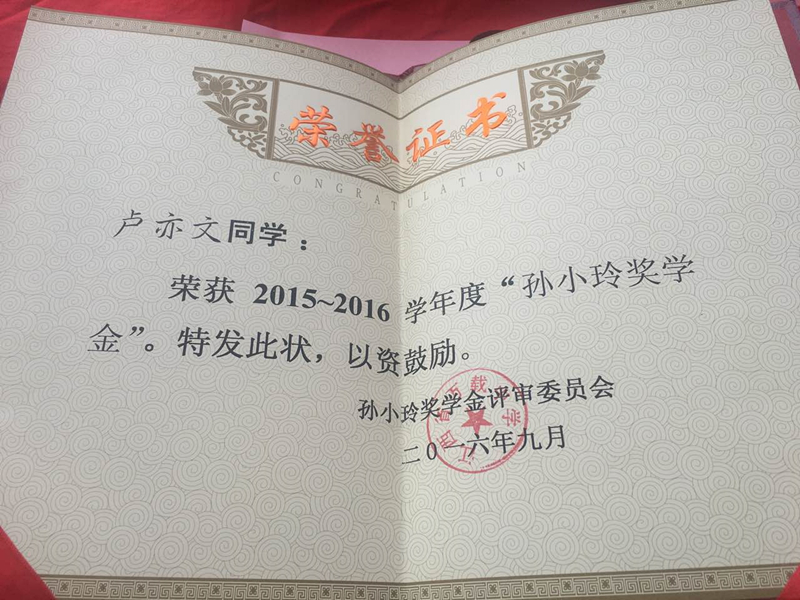 荣誉证书
CONGRATULATION
卢亦文同学：
荣获 2015~2016 学年度“孙小玲奖学
金”。特发此状，以资鼓励。
孙小玲奖学金评审委员会
二〇一六年九月